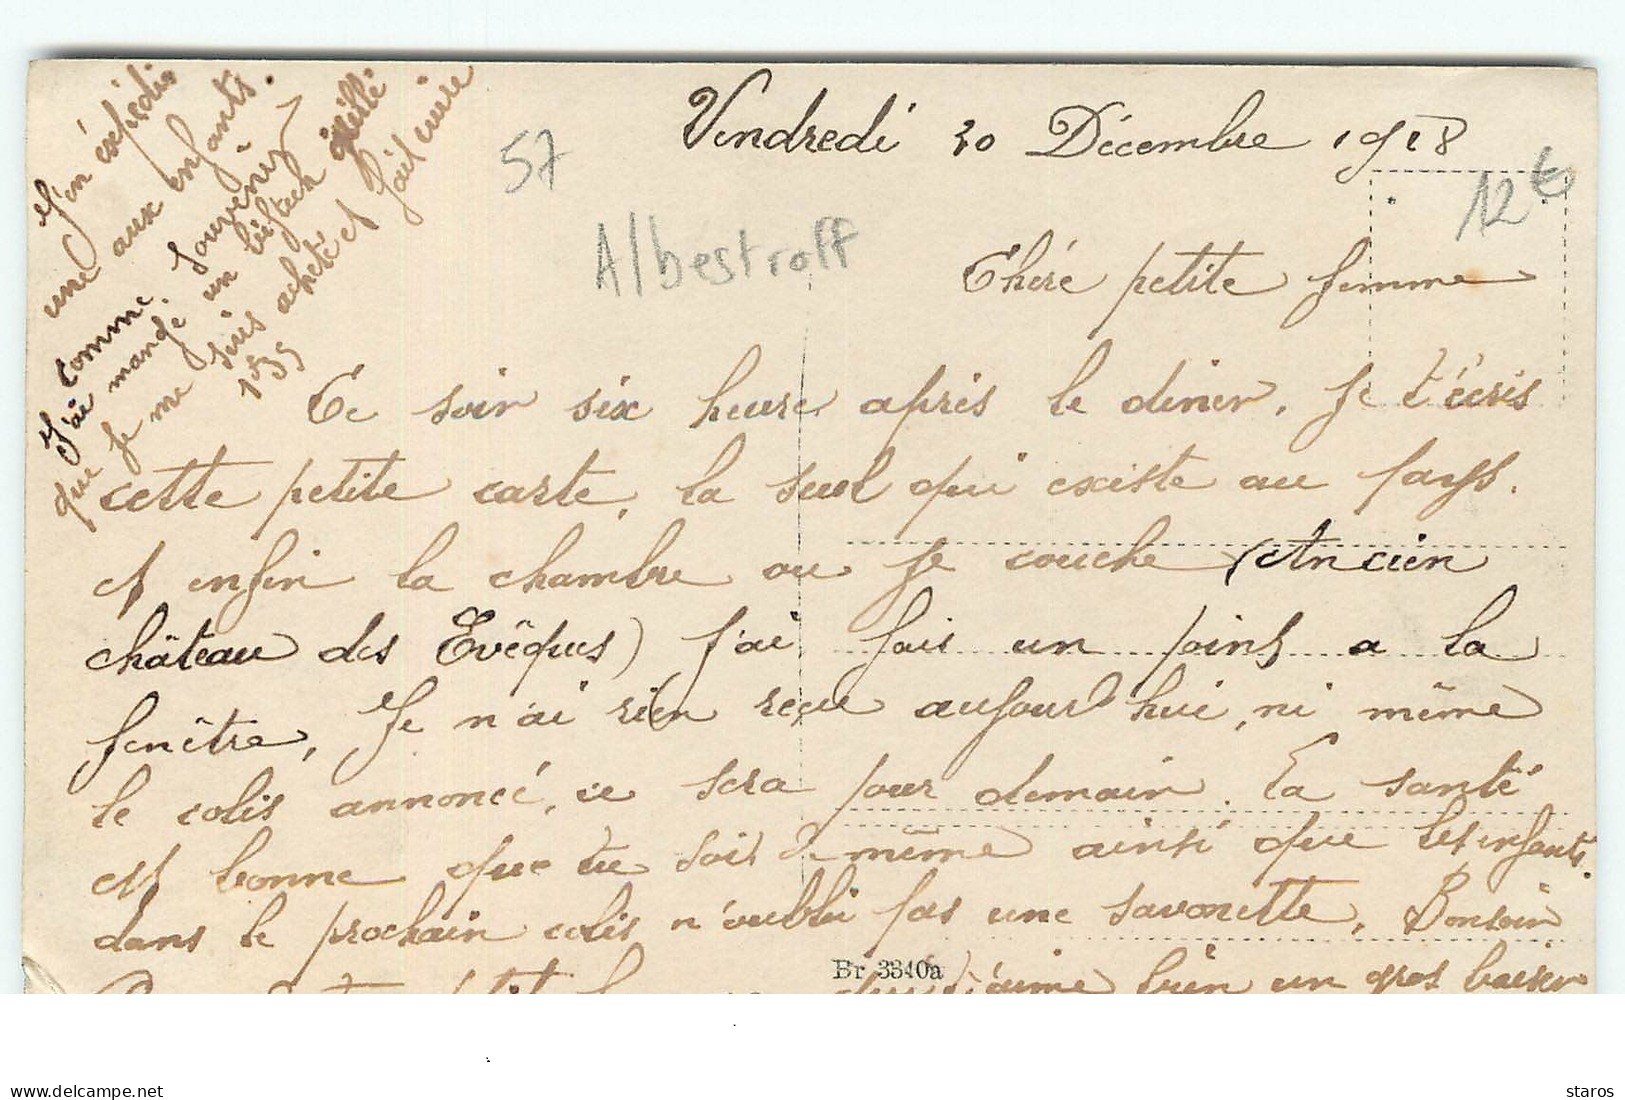 J'en expédie
une aux enfants.
comme souvenir
J'ai mangé un bifteck grillé
que je me suis acheté et fait cuire
1f35
57
Vendredi 20 Décembre 1918
12€
Albestroff
Chère petite femme
Ce soir six heures après le diner, Je t'écris
cette petite carte, la seul qui existe au pays.
et enfin la chambre ou je couche (Ancien
château des Evêques) j'ai fais un point a la
fenêtre, Je n'ai rien reçu aujourd'hui, ni même
le colis annoncé, ce sera pour demain. La santé
est bonne que tu sois de même ainsi que les enfants.
dans le prochain colis n'oubli pas une savonette, Bonsoir
Br 3340a
t'aime bien un gros baiser
staros